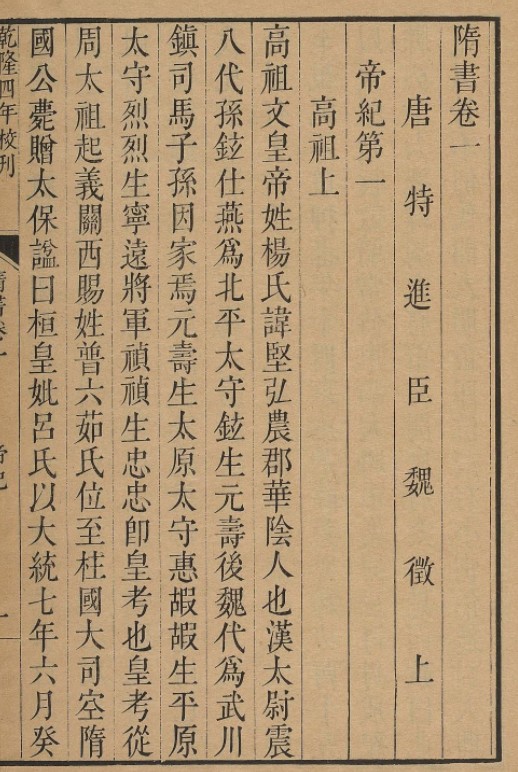 隋書卷一
唐特進臣魏徵上
帝紀第一
高祖上
高祖文皇帝姓楊氏諱堅弘農郡華陰人也漢太尉震
八代孫鉉仕燕爲北平太守鉉生元壽後魏代爲武川
鎮司馬子孫因家焉元壽生太原太守惠嘏嘏生平原
太守烈烈生寧遠將軍禎禎生忠忠卽皇考也皇考從
周太祖起義關西賜姓普六茹氏位至柱國大司空隋
國公薨贈太保諡曰桓皇妣呂氏以大統七年六月癸
乾隆四年校刊
隋書卷一
帝紀
一